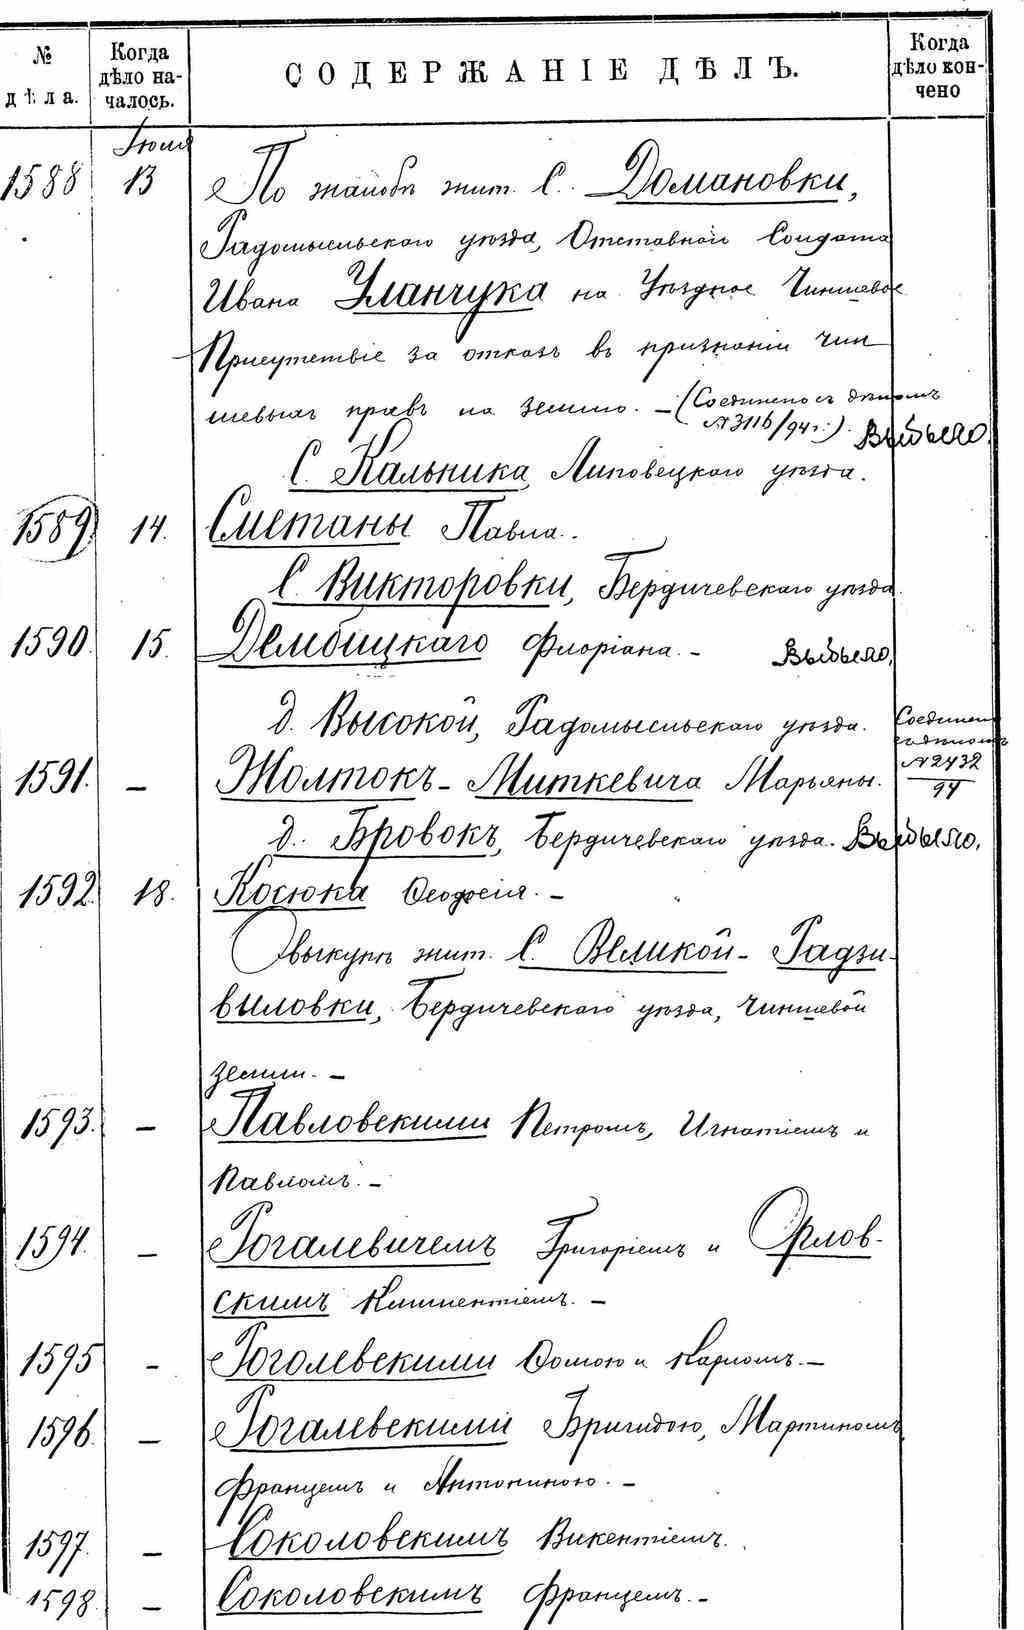 № дѣла.
Когда дѣло началось.
СОДЕРЖАНІЕ ДѢЛЪ.
Когда дѣло кончено
Іюля
1588 13 По жалобѣ жит. С. Домановки,
Радомысльскаго уѣзда, Отставной Солдата
Ивана Уланчука на Уѣздное Чиншевое
Присутствіе за отказъ въ признаніи чин
шевыхъ правъ на землю. – (Соединено съ дѣломъ
№ 3116/94 г.). Выбыло.
С. Кальника, Липовецкаго уѣзда.
1589 14. Сметаны Павла.
С. Викторовки, Бердичевскаго уѣзда
1590. 15. Дембицкаго Флоріана. – Выбыло.
д. Высокой, Радомысльскаго уѣзда. Соединено
съ дѣломъ
1591. – Жолтокъ-Миткевича Марьяны. № 2432
94
д. Бровокъ, Бердичевскаго уѣзда. Выбыло.
1592 18. Косюка Ѳеодосія. –
О выкупѣ жит. С. Великой-Радзи-
виловки, Бердичевскаго уѣзда, чиншевой
земли. –
1593. – Павловскими Петромъ, Игнатіемъ и
Павломъ. –
1594. – Рогалевичемъ Григоріемъ и Орлов-
скимъ Климентіемъ. –
1595 – Роголевскими Ѳомою и Карломъ. –
1596. – Рогалевскими Бригидою, Мартиномъ,
Францемъ и Антониною. –
1597. – Соколовскимъ Викентіемъ.
1598. – Соколовскимъ Францемъ. –